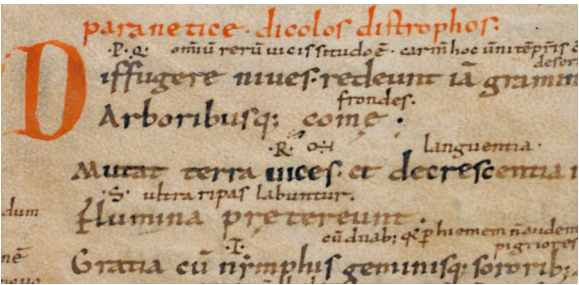 paranetice · dicolos distrophos:
·P·Q· omiū rerū uicissitudo ē · carm̄ hoc
Diffugere niues · redeunt iā gramin
frondes.
Arboribusq; comę ·
·R·
languentia ·
Mutat terra uices · et decrescentia
·S· ultra ripas labuntur.
dum
Flumina pretereunt ·
cū duab;
pigriores
·T·
Gratia cū nymphis geminisq; sororib;